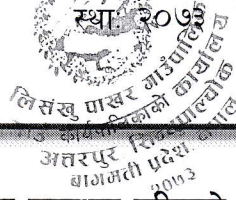 स्था. २०७३
लिसंखु पाखर गाउँपालिका
गाउँ कार्यपालिकाको कार्यालय
अत्तरपुर सिन्धुपाल्चोक
बागमती प्रदेश, नेपाल
२०७३